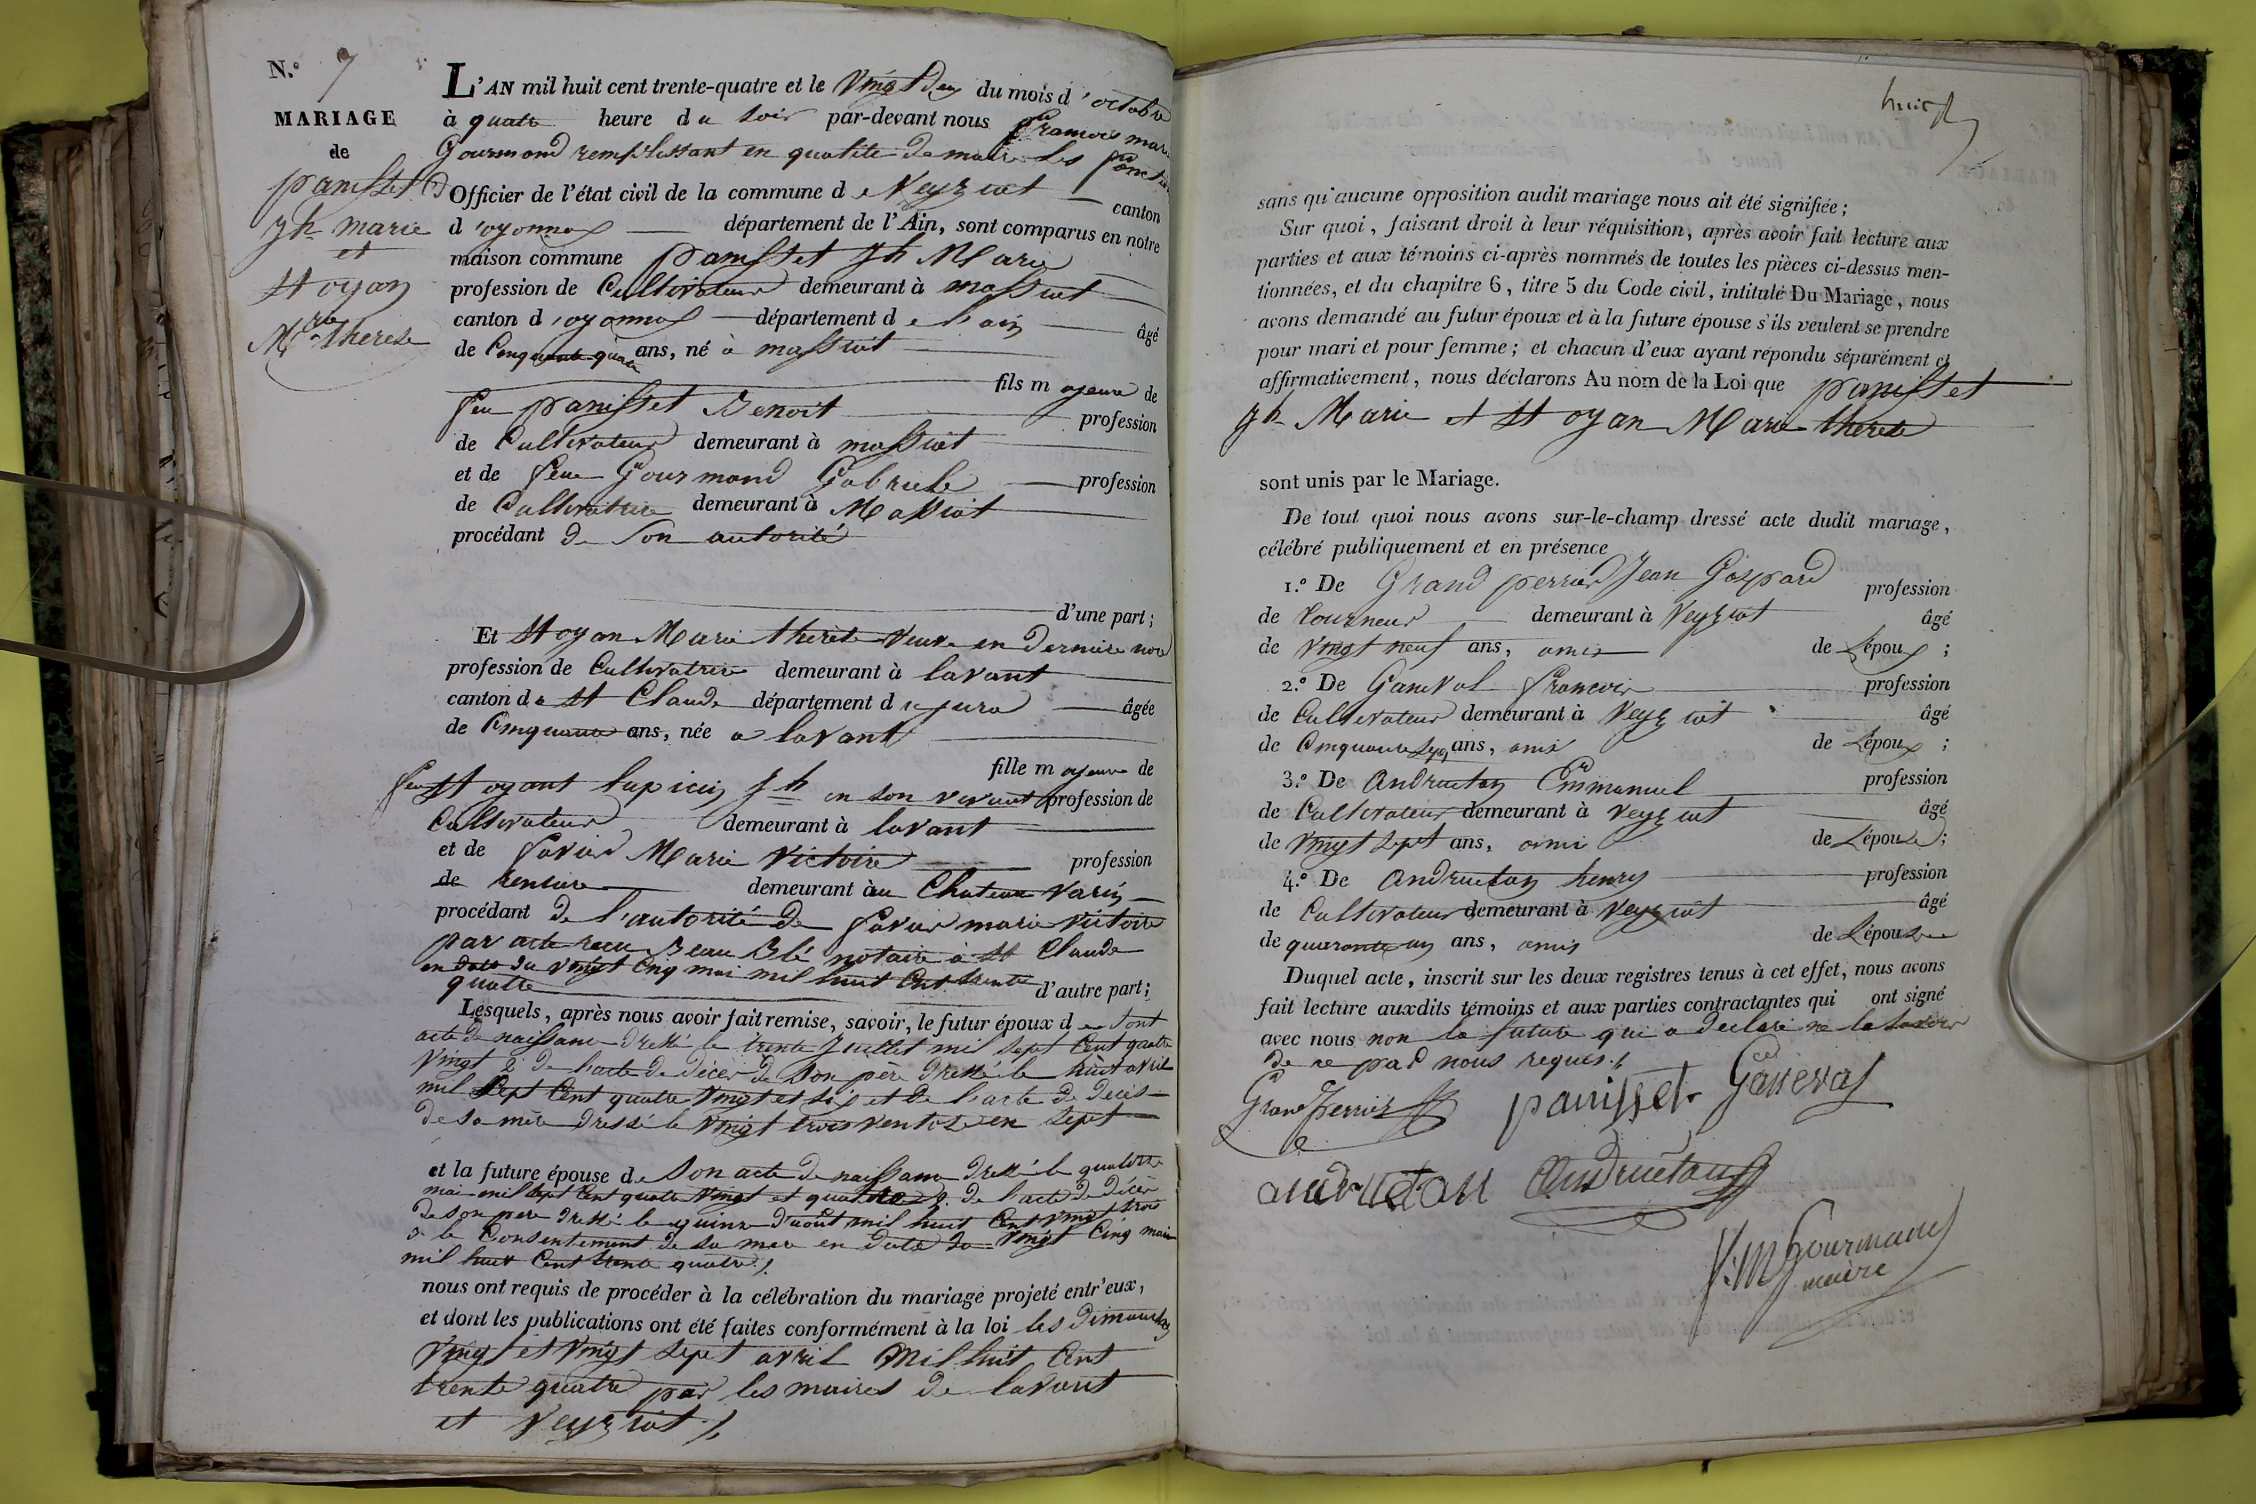 N.º 7
MARIAGE
de
panisset
jh marie
et
St oyan
Mrie therese
L'AN mil huit cent trente-quatre et le vingt deux du mois d'octobre
à quatre heure du soir par-devant nous francois marie
Gourmond remplissant en qualité de maire les fonctions
d'Officier de l'état civil de la commune de Veyziat canton
d'oyonnax département de l'Ain, sont comparus en notre
maison commune panisset jh Marie
profession de Cultivateur demeurant à massiat
canton d'oyonnax département de l'ain âgé
de Cinquante quatre ans, né à massiat
fils majeur de
feu panisset Benoit profession
de Cultivateur demeurant à massiat
et de feue Gourmand Gabriele profession
de Cultivatrice demeurant à Massiat
procédant de Son autorité
d'une part;
Et St oyan Marie therese veuve en derniere noce
profession de Cultivatrice demeurant à lavant
canton de St Claude département du jura âgée
de Cinquante ans, née a lavant
fille majeure de
feu St oyant lupicin jh en son vivant profession de
Cultivateur demeurant à lavant
et de favier Marie victoire profession
de rentiere demeurant au Chateau varin
procédant de l'autorité de favier marie victoire
par acte recu Beau Blé notaire à St Claude
en date du vingt cinq mai mil huit Cent trente
quatre d'autre part;
Lesquels, après nous avoir fait remise, savoir, le futur époux de Sont
acte de naissance dressé le trente juillet mil sept Cent quatre
vingt 2º de l'acte de décès de son père dressé le huit avril
mil sept Cent quatre vingt et six et de l'acte de décès
de sa mère dressé le vingt trois ventose en sept
et la future épouse de Son acte de naissance dressé le quatre
mai mil sept Cent quatre vingt et quatre 2º de l'acte de décès
de son pere dressé le quinze d'août mil huit Cent vingt trois
3º le Consentement de sa mere en date du vingt Cinq mai
mil huit Cent trente quatre
nous ont requis de procéder à la célébration du mariage projeté entr'eux,
et dont les publications ont été faites conformément à la loi les dimanches
vingt et vingt sept avril Mil huit Cent
trente quatre par les maires de lavant
et veyziat
huit
sans qu'aucune opposition audit mariage nous ait été signifiée;
Sur quoi, faisant droit à leur réquisition, après avoir fait lecture aux
parties et aux témoins ci-après nommés de toutes les pièces ci-dessus men-
tionnées, et du chapitre 6, titre 5 du Code civil, intitulé Du Mariage, nous
avons demandé au futur époux et à la future épouse s'ils veulent se prendre
pour mari et pour femme; et chacun d'eux ayant répondu séparément et
affirmativement, nous déclarons Au nom de la Loi que panisset
jh Marie et St oyan Marie therese
sont unis par le Mariage.
De tout quoi nous avons sur-le-champ dressé acte dudit mariage,
célébré publiquement et en présence
1.º De Grand perrier Jean Gaspard profession
de tourneur demeurant à Veyziat âgé
de vingt neuf ans, amis de L'époux;
2.º De Ganeval francois profession
de Cultivateur demeurant à Veyziat âgé
de Cinquante sept ans, amis de L'époux;
3.º De Andruetan Emmanuel profession
de Cultivateur demeurant à veyziat âgé
de vingt sept ans, ami de L'épouse;
4.º De Andruetan henry profession
de Cultivateur demeurant à veyziat âgé
de quarante un ans, amis de L'épouse
Duquel acte, inscrit sur les deux registres tenus à cet effet, nous avons
fait lecture auxdits témoins et aux parties contractantes qui ont signé
avec nous non la future qui a declaré ne le savoir
de ce par nous requis
Grand Perrier panisset Ganeval
andruetan Andruetan
f: M Gourmand
maire